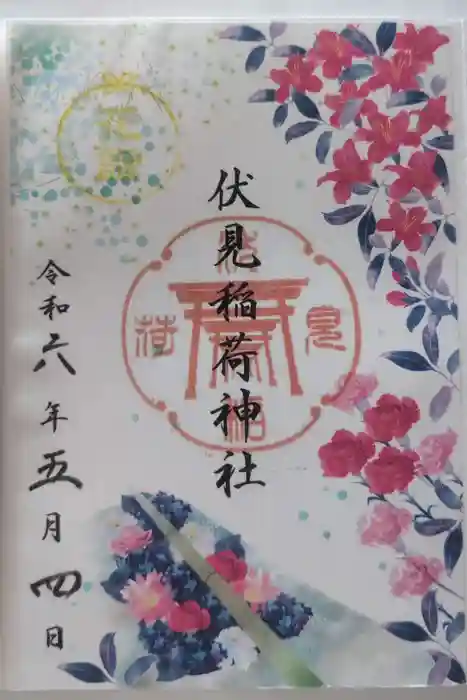 伏見稲荷神社
見
荷
令和六年五月四日